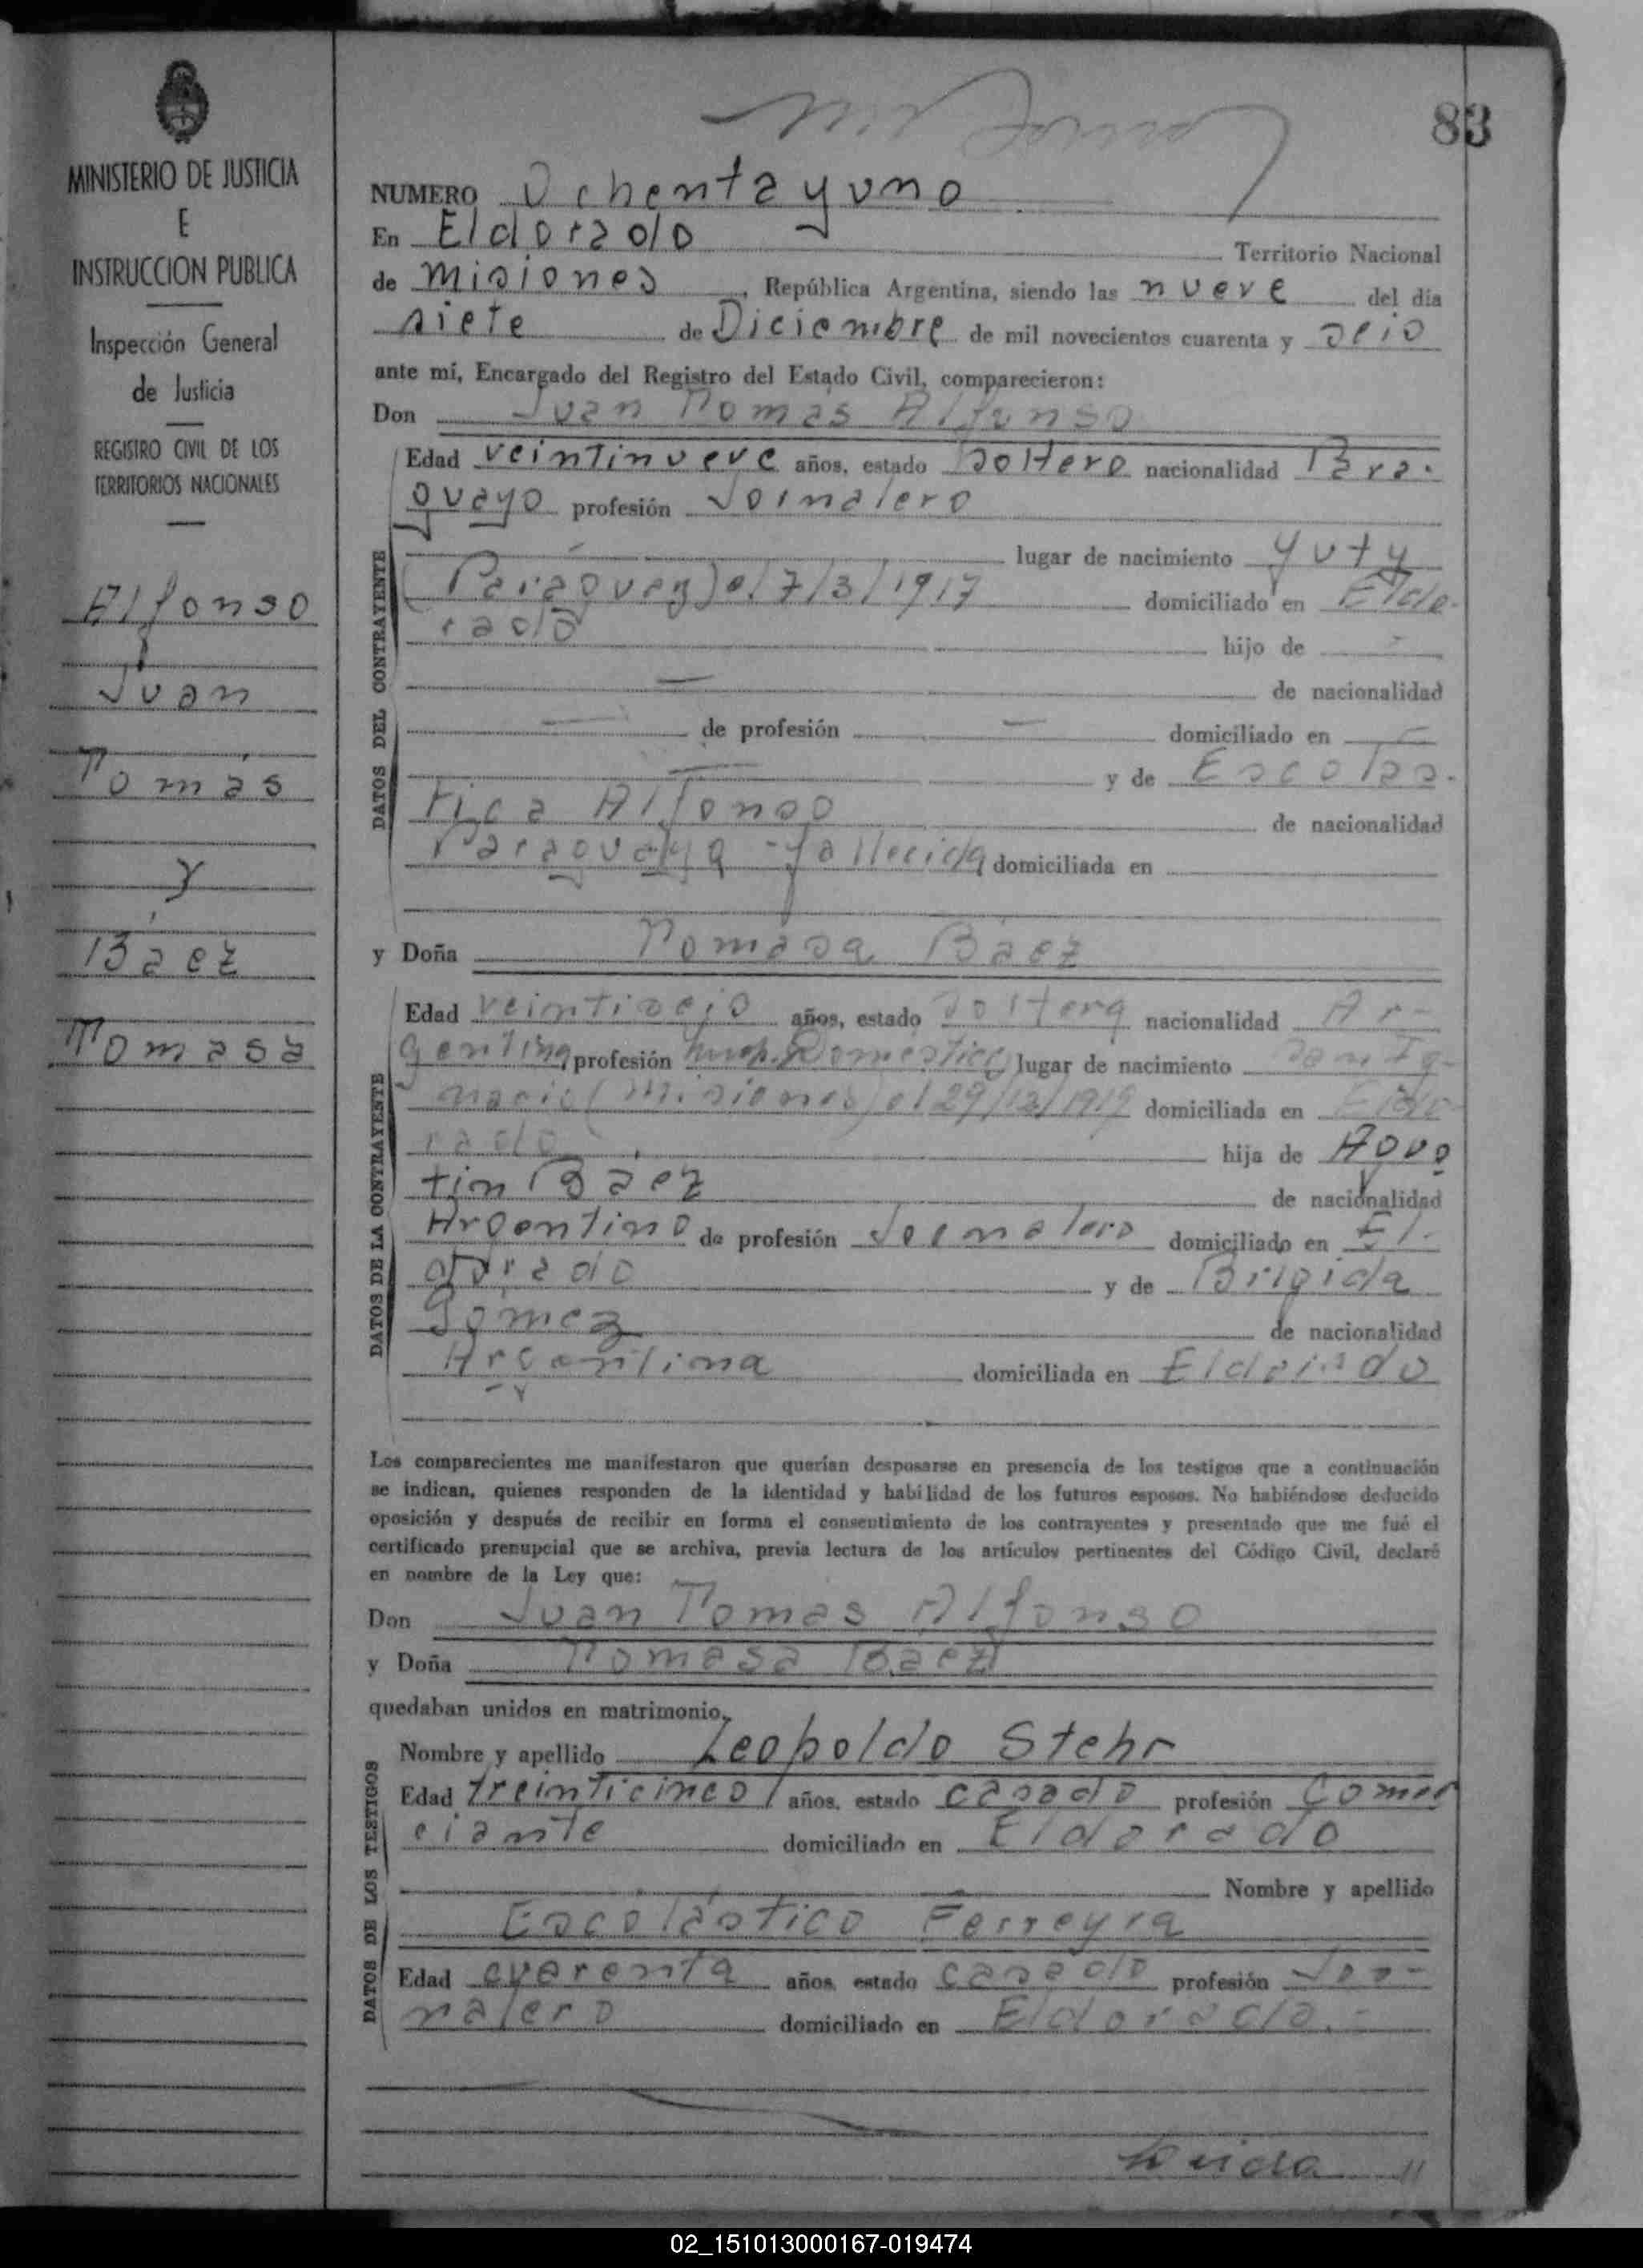 83
MINISTERIO DE JUSTICIA
E
INSTRUCCION PUBLICA
Inspección General
de Justicia
REGISTRO CIVIL DE LOS
TERRITORIOS NACIONALES
Alfonso
Juan
Tomás
y
Báez
Tomasa
NUMERO Ochenta y uno
En Eldorado Territorio Nacional
de Misiones, República Argentina, siendo las nueve del día
siete de Diciembre de mil novecientos cuarenta y seis
ante mí, Encargado del Registro del Estado Civil, comparecieron:
Don Juan Tomás Alfonso
DATOS DEL CONTRAYENTE
Edad veintinueve años, estado soltero nacionalidad Para-
guayo profesión Jornalero
lugar de nacimiento Yuty
(Paraguay) el 7/3/1917 domiciliado en Eldo-
rado
hijo de -
— de nacionalidad
— de profesión — domiciliado en —
— y de Escolás-
tica Alfonso de nacionalidad
Paraguaya - fallecida domiciliada en
y Doña Tomasa Báez
DATOS DE LA CONTRAYESTE
Edad veintiseis años, estado soltera nacionalidad Ar-
gentina profesión Domestica lugar de nacimiento San Ig-
nacio (Misiones) el 29/12/1919 domiciliada en Eldo-
rado hija de Agus
tin Báez de nacionalidad
Argentino de profesión Jornalero domiciliado en El-
dorado y de Brigida
Gómez de nacionalidad
Argentina domiciliada en Eldorado
Los comparecientes me manifestaron que querían desposarse en presencia de los testigos que a continuación
se indican, quienes responden de la identidad y habilidad de los futuros esposos. No habiéndose deducido
oposición y después de recibir en forma el consentimiento de los contrayentes y presentado que me fué el
certificado prenupcial que se archiva, previa lectura de los artículos pertinentes del Código Civil, declaré
en nombre de la Ley que:
Don Juan Tomás Alfonso
y Doña Tomasa Báez
quedaban unidos en matrimonio.
DATOS DE LOS TESTIGOS
Nombre y apellido Leopoldo Stehr
Edad treinticinco años, estado casado profesión Comer
ciante domiciliado en Eldorado
Nombre y apellido
Escolástico Ferreyra
Edad cuarenta años, estado casado profesión Jor-
nalero domiciliado en Eldorado.-
02_151013000167-019474